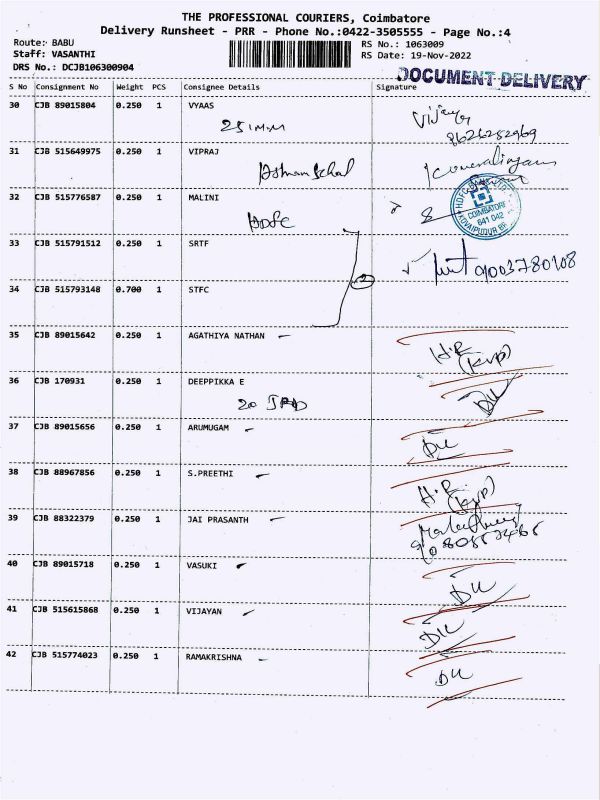 THE PROFESSIONAL COURIERS, Coimbatore
Delivery Runsheet - PRR - Phone No.:0422-3505555 - Page No.:4
Route: BABU
RS No.: 1063009
Staff: VASANTHI
RS Date: 19-Nov-2022
DRS No.: DCJB106300904
DOCUMENT DELIVERY
S No Consignment No Weight PCS Consignee Details Signature
30 CJB 89015804 0.250 1 VYAAS
31 CJB 515649975 0.250 1 VIPRAJ
32 CJB 515776587 0.250 1 MALINI
HDFC
COIMBATORE
641 042
33 CJB 515791512 0.250 1 SRTF
9003780108
34 CJB 515793148 0.700 1 STFC
2
35 CJB 89015642 0.250 1 AGATHIYA NATHAN
H.R
(KVP)
36 CJB 170931 0.250 1 DEEPPIKKA E
DU
37 CJB 89015656 0.250 1 ARUMUGAM
DU
38 CJB 88967856 0.250 1 S.PREETHI
H.R
(KVP)
39 CJB 88322379 0.250 1 JAI PRASANTH
40 CJB 89015718 0.250 1 VASUKI
DU
41 CJB 515615868 0.250 1 VIJAYAN
DU
42 CJB 515774023 0.250 1 RAMAKRISHNA
DU